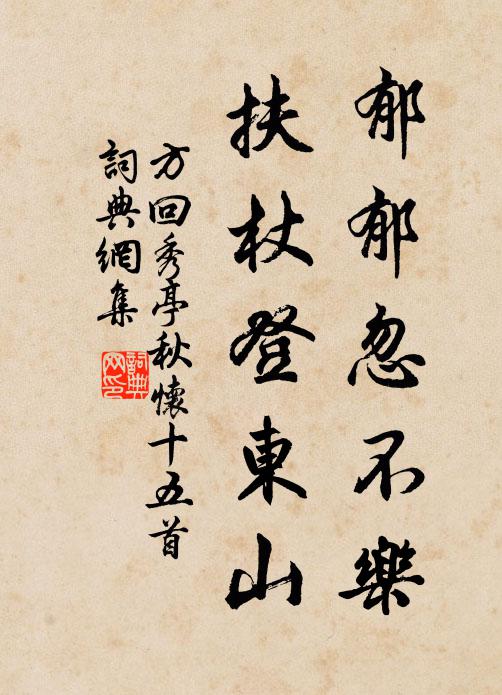 郁郁忽不樂
扶杖登東山
方回秀亭秋懷十五首
詞典網集
詞典
网印